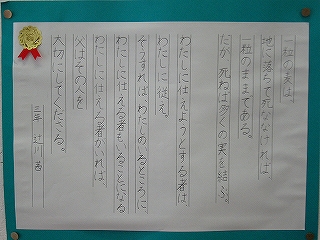 一粒の麦は、
地に落ちて死ななければ、
一粒のままである。
だが、死ねば多くの実を結ぶ。
わたしに仕えようとする者は
わたしに従え。
そうすればわたしのいるところに
わたしに仕える者もいることになる
わたしに仕える者がいれば、
父はその人を
大切にしてくださる。
三年 辻川